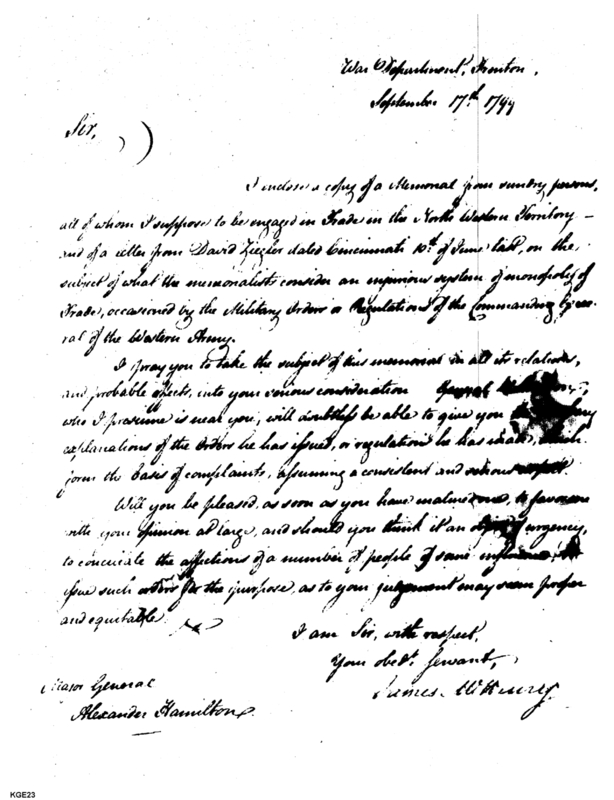 War Department, Trenton,
September 17th 1799
Sir,
I enclose a copy of a Memorial from sundry persons,
all of whom I suppose to be engaged in Trade in the North Western Territory –
and of a letter from David Ziegler dated Cincinnati 10th of June last, on the
subject of what the memorialists consider an injurious system of monopoly of
Trade, occasioned by the Military Orders or Regulations of the Commanding Gene-
ral of the Western Army.
I pray you to take the subject of this memorial in all its relations,
and probable effects, into your serious consideration
who I presume is near you, will doubtless be able to give you
explanations of the Orders he has issued, or regulation he has made, which
form the basis of complaints, assuming a consistent and serious aspect.
Will you be pleased, as soon as you have matured one, to favor me
with your opinion at large, and should you think it an object of urgency,
to conciliate the affections of a number of people of some influence, to
issue such orders for the purpose, as to your judgement may seem proper
and equitable.
I am Sir, with respect,
Your obedt. Servant,
James McHenry
Major General
Alexander Hamilton.
KGE23